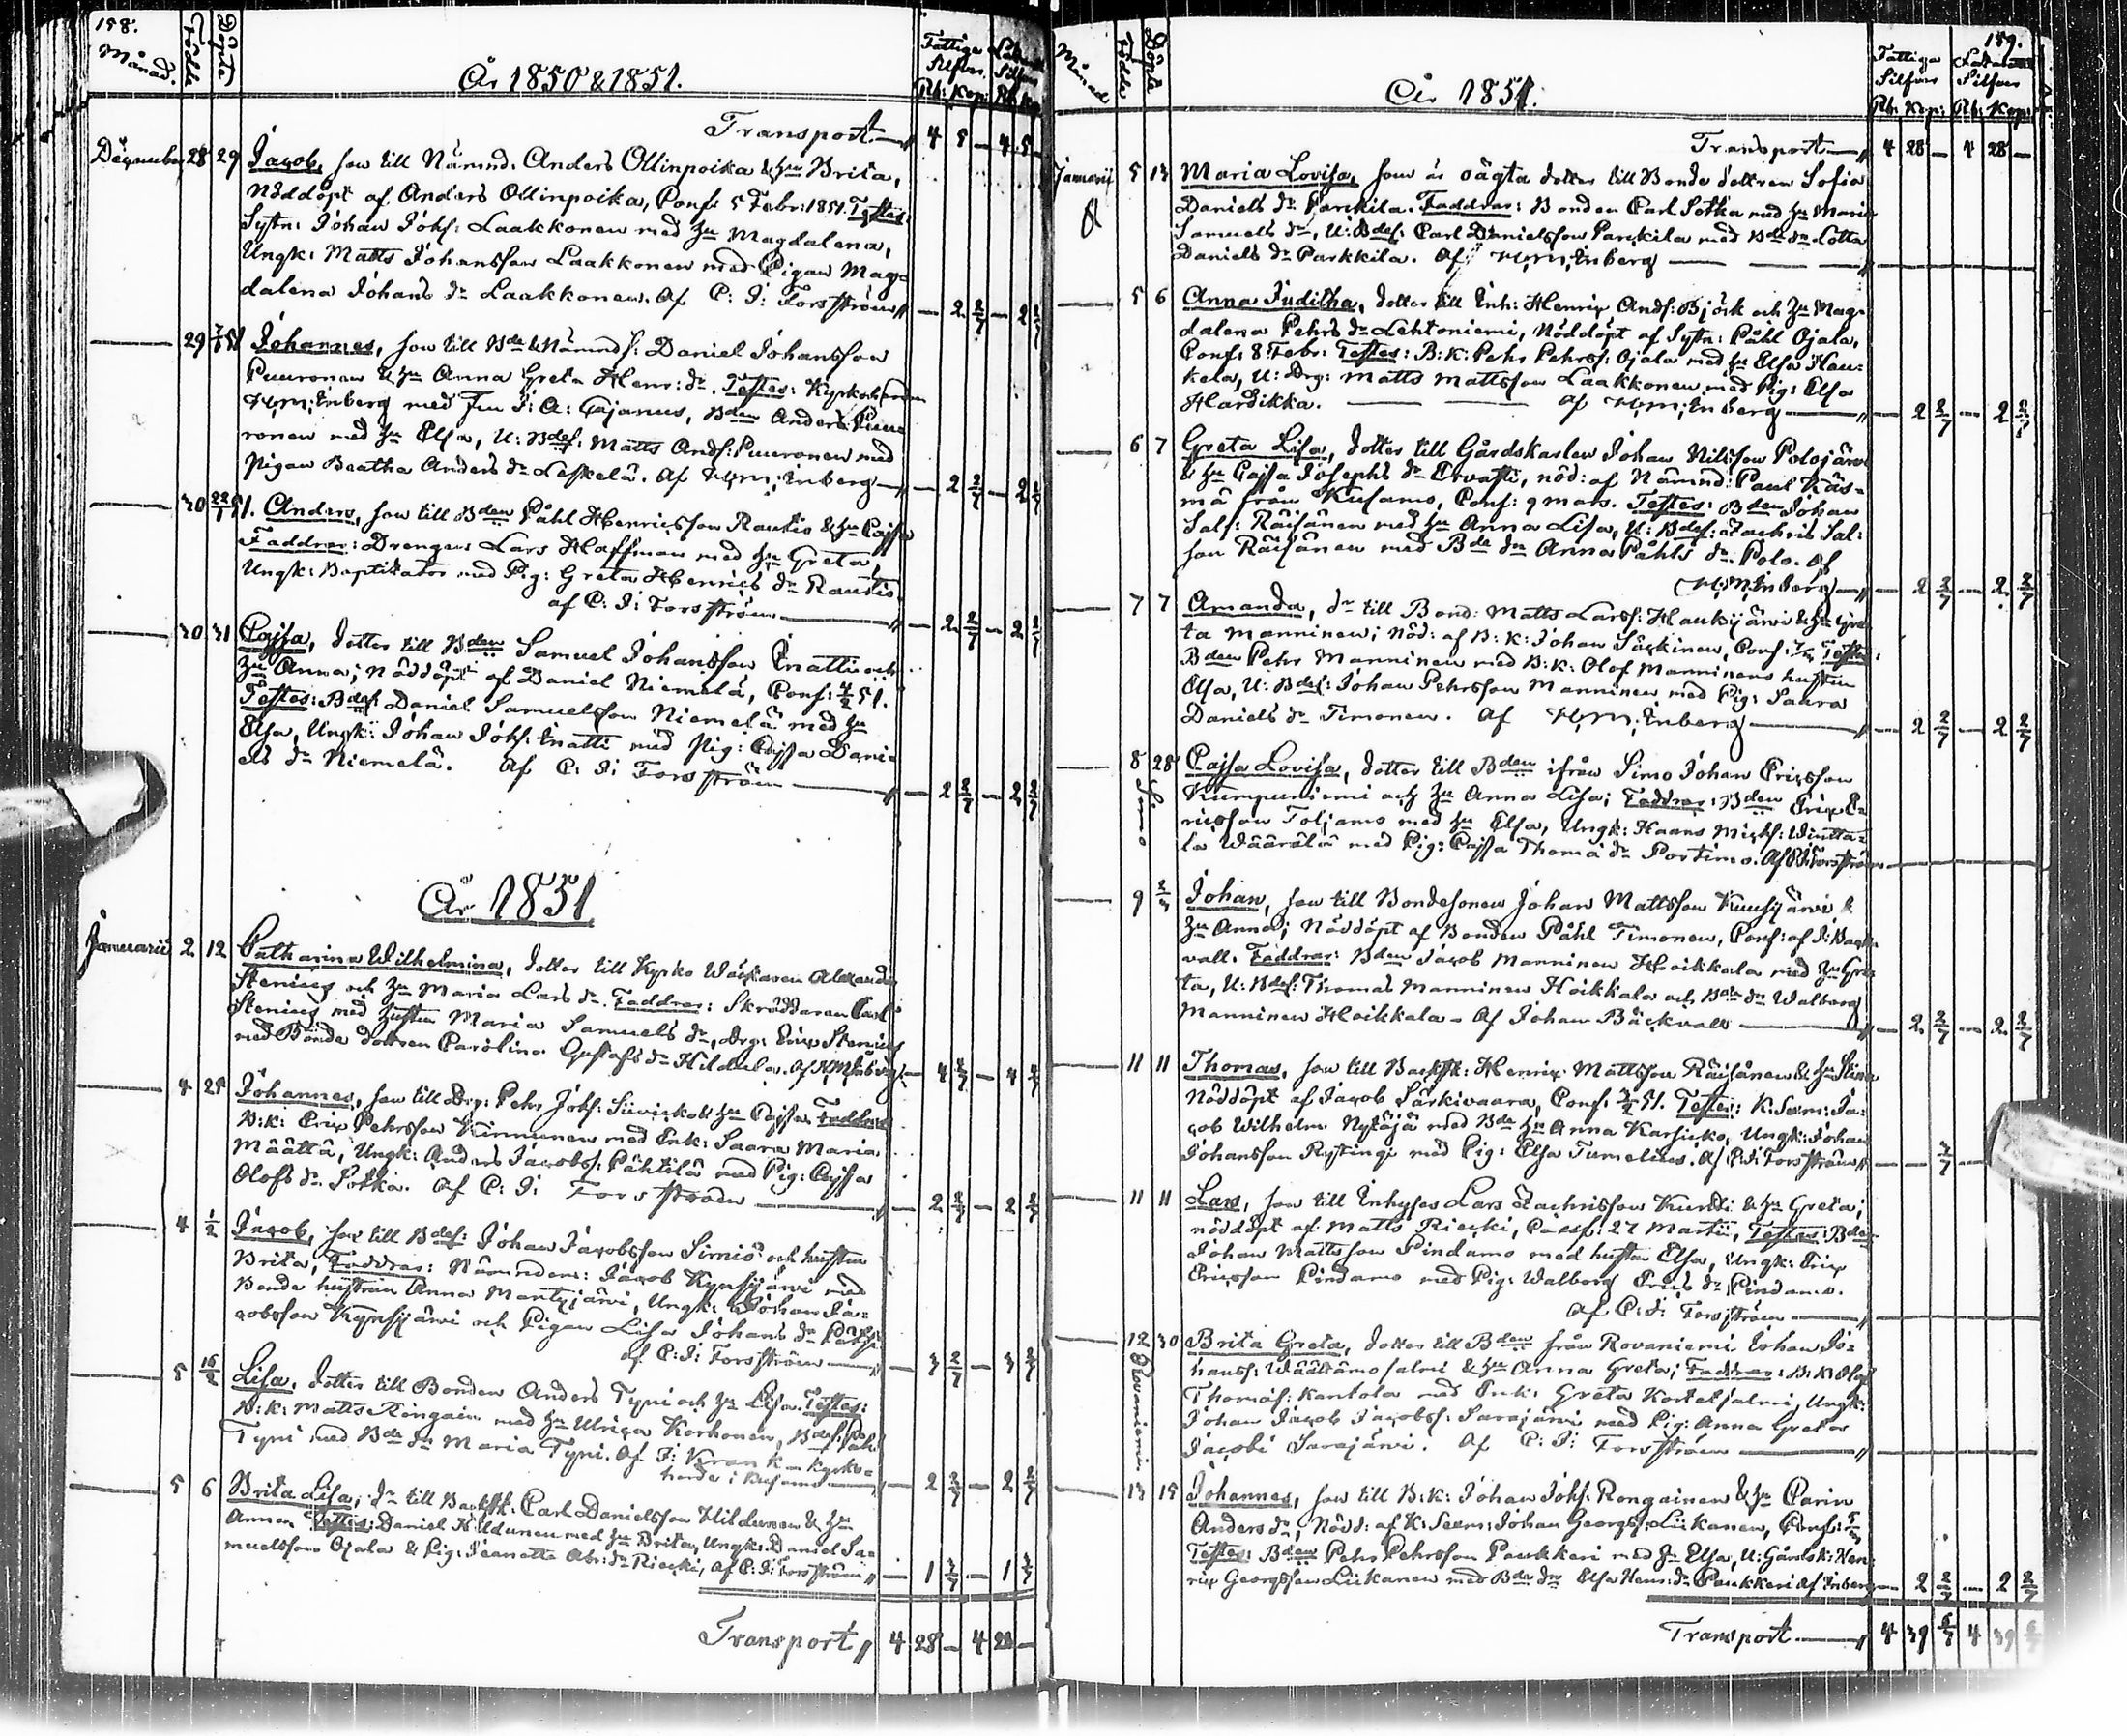 158.
Månad. Födde Döpte År 1850 & 1851. Fattiga Silfver. Rb: Kop: Silfver Rb Kop
Transport — 4 5 — 4 5 —
December 28 29 Jacob, son till Nämnd. Anders Ollinpoika & hu Brita,
Nöddöpt af Anders Ollinpoika, Conf. 5 Febr: 1851. Testes:
Sytn: Johan Johs: Laakkonen med hu Magdalena,
Ungk: Matts Johansson Laakkonen med Pigan Mag-
dalena Johans dr Laakkonen. Af C: J: Forsström — 2 2/7 — 2 2/7
— 29 51 Johannes, son till Bde & Nämnds: Daniel Johansson
Puuronen & hu Anna Greta Henr: dr. Testes: Kyrkoherden
Inberg med Fru J: A: Cajanus, Bden Anders Puu-
ronen med hu Elsa, U: Bdes: Matts Ands: Puuronen med
Pigan Beatha Anders dr Leskelä. Af Inberg — 2 2/7 — 2 2/7
— 30 22/1 51. Anders, son till Bden Påhl Henricsson Rautio & hu Cajsa
Faddrar: Drengen Lars Haffman med hu Greta,
Ungk: Baptikator med Pig: Greta Henrics dr Rautio.
af C: J: Forsström — 2 2/7 — 2 2/7
— 30 31 Cajsa, dotter till Bden Samuel Johansson Inatti och
hu Anna; Nöddöpt af Daniel Niemelä, Conf: 4/2 51.
Testes: Bdes: Daniel Samuelsson Niemelä med hu
Elsa, Ungk: Johan Johs: Inatti med Pig: Cajsa Dani-
els dr Niemelä. Af C: J: Forsström — 2 2/7 — 2 2/7
År 1851
Januarii 2 12 Catharina Wilhelmina, dotter till Kyrko Wäktaren Alexander
Stenius och hu Maria Lars dr. Faddrar: Skräddaren Carl
Stenius med hustru Maria Samuels dr, Drg: Eric Stenius
med Bonde dottren Carolina Gustafs dr Hildula. Af Inberg — 4 2/7 — 4 2/7
— 4 25 Johannes, son till Drg: Pehr Johs: Siivicko & hu Cajsa, Faddrar
B:k: Eric Pehrsson Kinnunen med Enk: Saara Maria
Määttä, Ungk: Anders Jacobs: Pähtilä med Pig: Cajsa
Olofs dr Sotka. Af C: J: Forsström — 2 2/7 — 2 2/7
— 4 1/2 Jacob, son till Bdes: Johan Jacobsson Sirniö och hustru
Brita, Faddrar: Nämndem: Jacob Kynsijärvi med
Bonde hustrun Anna Mantyjärvi, Ungk: Johan Ja-
cobsson Kynsijärvi och Pigan Lisa Johans dr
af C: J: Forsström — 3 2/7 — 3 2/7
— 5 16/2 Lisa, dotter till Bonden Anders Typi och hu Lisa. Testes:
B:k: Matts Rongain med hu Ulrica Korhonen, Bdes:
Typi med Bde dr Maria Typi. Af J: Krank Kyrko-
herde i Kusamo — 2 2/7 — 2 2/7
— 5 6 Brita Lisa, dr till Backstk. Carl Danielsson Hildunen & hu
Anna. Testes: Daniel Hildunen med hu Brita, Ungk: Daniel Sa-
muelsson Ojala & Pig: Jeanette Abr: dr Riecki, Af C: J: Forsström — 1 2/7 — 1 2/7
Transport 4 28 — 4 28 —
159.
Månad Födde Döpte År 1851. Fattiga Silfver Rb: Kop: Silfver Rb: Kop:
Transport — 4 28 — 4 28 —
Januarii 5 13 Maria Lovisa, som är oägta dotter till Bonde dottren Sofia
Daniels dr Parkkila. Faddrar: Bonden Carl Sotka med hu Maria
Samuels dr, U: Bdes: Carl Danielsson Parckila med Bde dr Lotta
Daniels dr Parkkila. Af Inberg —
— 5 6 Anna Juditha, dotter till Inh: Henric Ands: Björk och hu Mag-
dalena Pehrs dr Lehtoniemi, Nöddöpt af Sytn: Påhl Ojala,
Conf: 8 Febr: Testes: B:k: Pehr Pehrss: Ojala med hu Elsa Hau-
kela, U: Drg: Matts Mattsson Laakkonen med Pig: Elsa
Hardikka. — af Inberg — 2 2/7 — 2 2/7
— 6 7 Greta Lisa, dotter till Gårdskarlen Johan Nilsson Polojärvi
& hu Cajsa Josephs dr Ervasti, nöd: af Nämnd: Paul Käs-
mä från Kusamo, Conf: 9 Mars. Testes: Bden Johan
Sals: Räisänen med hu Anna Lisa, U: Bdes: Zachris Sal:
son Räisänen med Bde dr Anna Påhls dr Polo. Af
Inberg — 2 2/7 — 2 2/7
— 7 7 Amanda, dr till Bond: Matts Larss: Haukijärvi & hu Gre-
ta Manninen; Nöd: af B:k: Johan Särkinen, Conf: Testes:
Bden Pehr Manninen med B:k: Olof Manninens hustru
Elsa, U: Bdes: Johan Pehrsson Manninen med Pig: Saara
Daniels dr Timonen. Af Inberg — 2 2/7 — 2 2/7
— 8 28 Simo Cajsa Lovisa, dotter till Bden ifrån Simo Johan Ericsson
Kumpuniemi och hu Anna Lisa; Faddrar: Bden Eric E-
ricsson Toljamo med hu Elsa, Ungk: Haans Micks:
la Wäärälä med Pig: Cajsa Thoma dr Portimo. Af Forsström
— 9 2/3 Johan, son till Bondesonen Johan Mattsson Kuusijärvi &
hu Anna; Nöddöpt af Bonden Påhl Timonen, Conf: af J: Bäck-
vall. Faddrar: Bden Jacob Manninen Hoikkala med hu Gre-
ta, U: Bdes: Thomas Manninen Hoikkala och Bde dr Walborg
Manninen Hoikkala. Af Johan Bäckvall — 2 2/7 — 2 2/7
— 11 11 Thomas, son till Backstk: Henric Mattsson Räisänen & hu Stina
Nöddöpt af Jacob Särkivaara, Conf: 51. Testes: K: Sexm: Ja-
cob Wilhelm Nykäjä med Bde hu Anna Karsicko, Ungk: Johan
Johansson Rytinge med Pig: Elsa Tumelius. Af C: J: Forsström — 2/7 —
— 11 11 Lars, son till Inhyses Lars Zachrisson Kurtti & hu Greta;
nöddöpt af Matts Riecki, Conf: 27 Martii, Testes: Bden
Johan Mattsson Pindamo med hustru Elsa, Ungk: Eric
Ericsson Pindamo med Pig: Walborg Erics dr Pindamo.
af C: J: Forsström —
— 12 30 Rovaniemi Brita Greta, dotter till Bden från Rovaniemi Johan Jo-
hanss: Wäättämosalmi & hu Anna Greta; Faddrar: B:k: Olof
Thomass: Kantola med Enk: Greta Kortetsalmi, Ungk:
Johan Jacob Jacobss: Sarajärvi med Pig: Anna Greta
Jacobs Sarajärvi. Af C: J: Forsström —
— 13 15 Johannes, son till B:k: Johan Johs: Rongainen & hu Carin
Anders dr, Nödd: af K: Sexm: Johan Georgs: Liikanen, Conf:
Testes: Bden Pehr Pehrsson Paukkeri med hu Elsa, U: Gårdsk: Hen-
ric Georgsson Liikanen med Bde dr Elsa Henr: dr Paukkeri Af Inberg — 2 2/7 — 2 2/7
Transport — 4 39 6/7 4 39 6/7